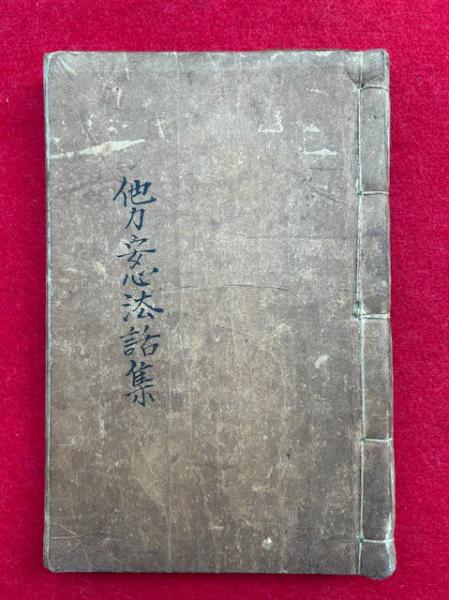 他力安心法話集